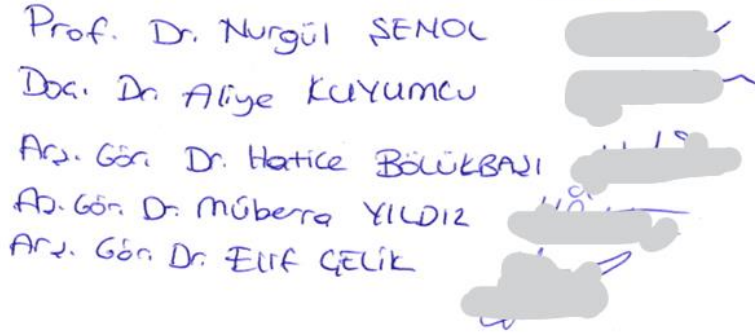 Prof. Dr. Nurgül ŞENOL
Doç. Dr. Aliye KUYUMCU
Arş. Gör. Dr. Hatice BÖLÜKBAŞI
Aş. Gör. Dr. Müberra YILDIZ
Arş. Gör. Dr. Elif ÇELİK